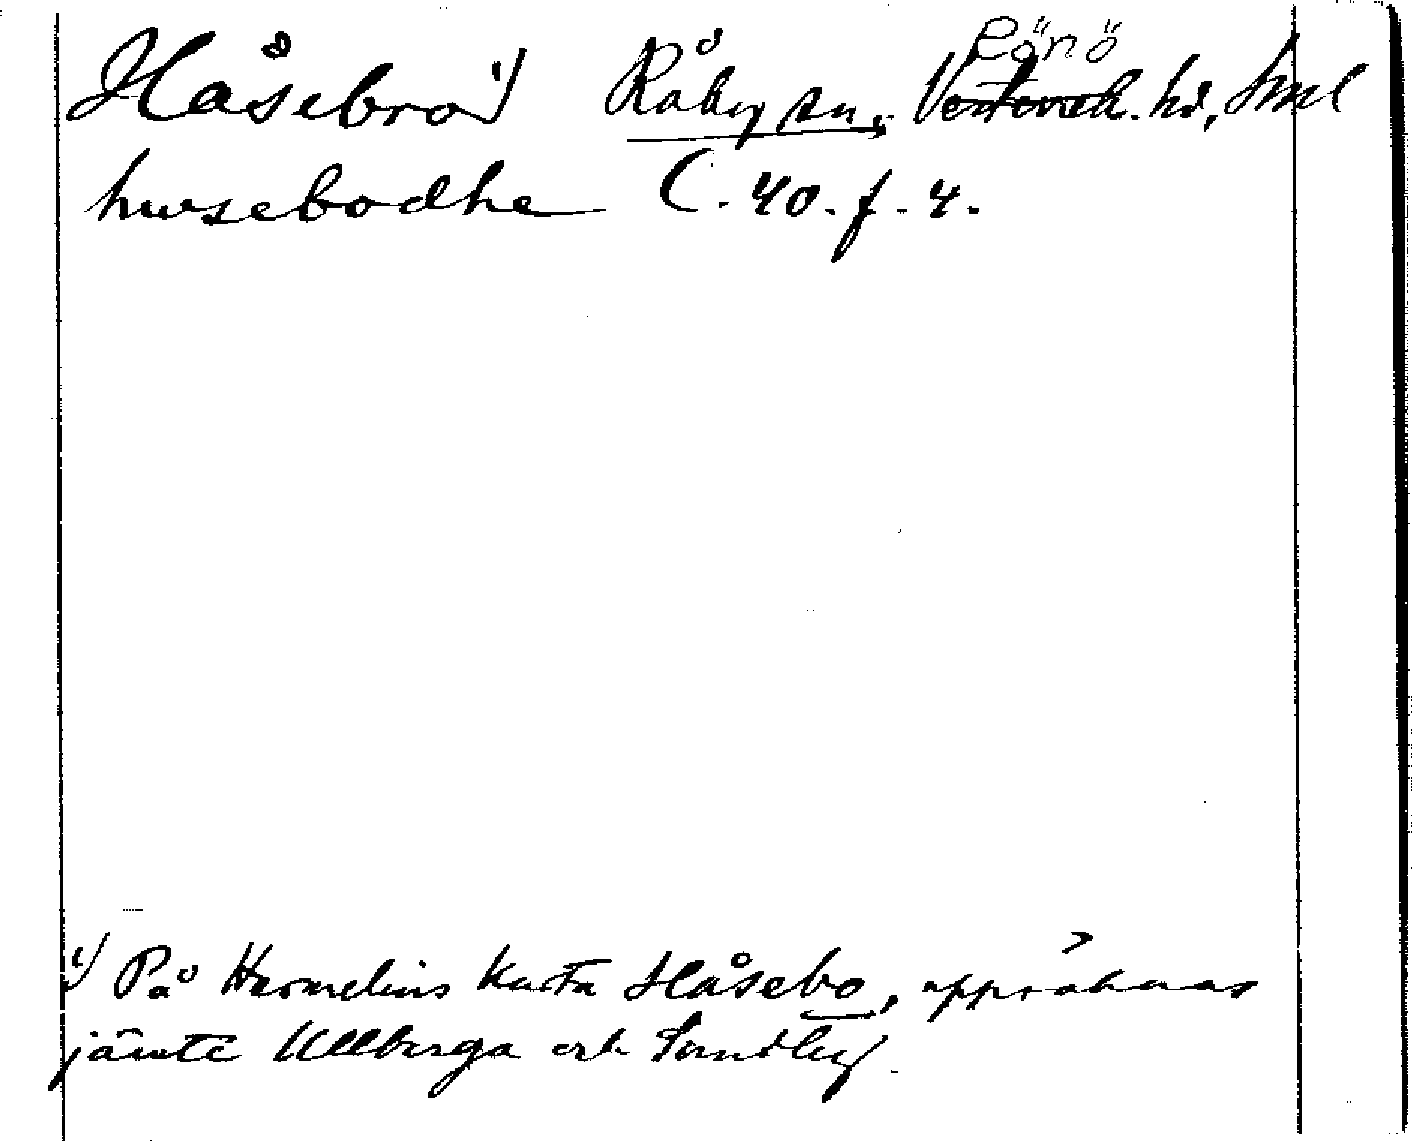 Håsebro 1) Råby sn, Rönö ~~Vesterreh.~~ hd, Sml
husebodhe C. 40. f. 4.
1) På Hermelins karta Håsebo, uppräknas
jämte Ullberga och Sundby